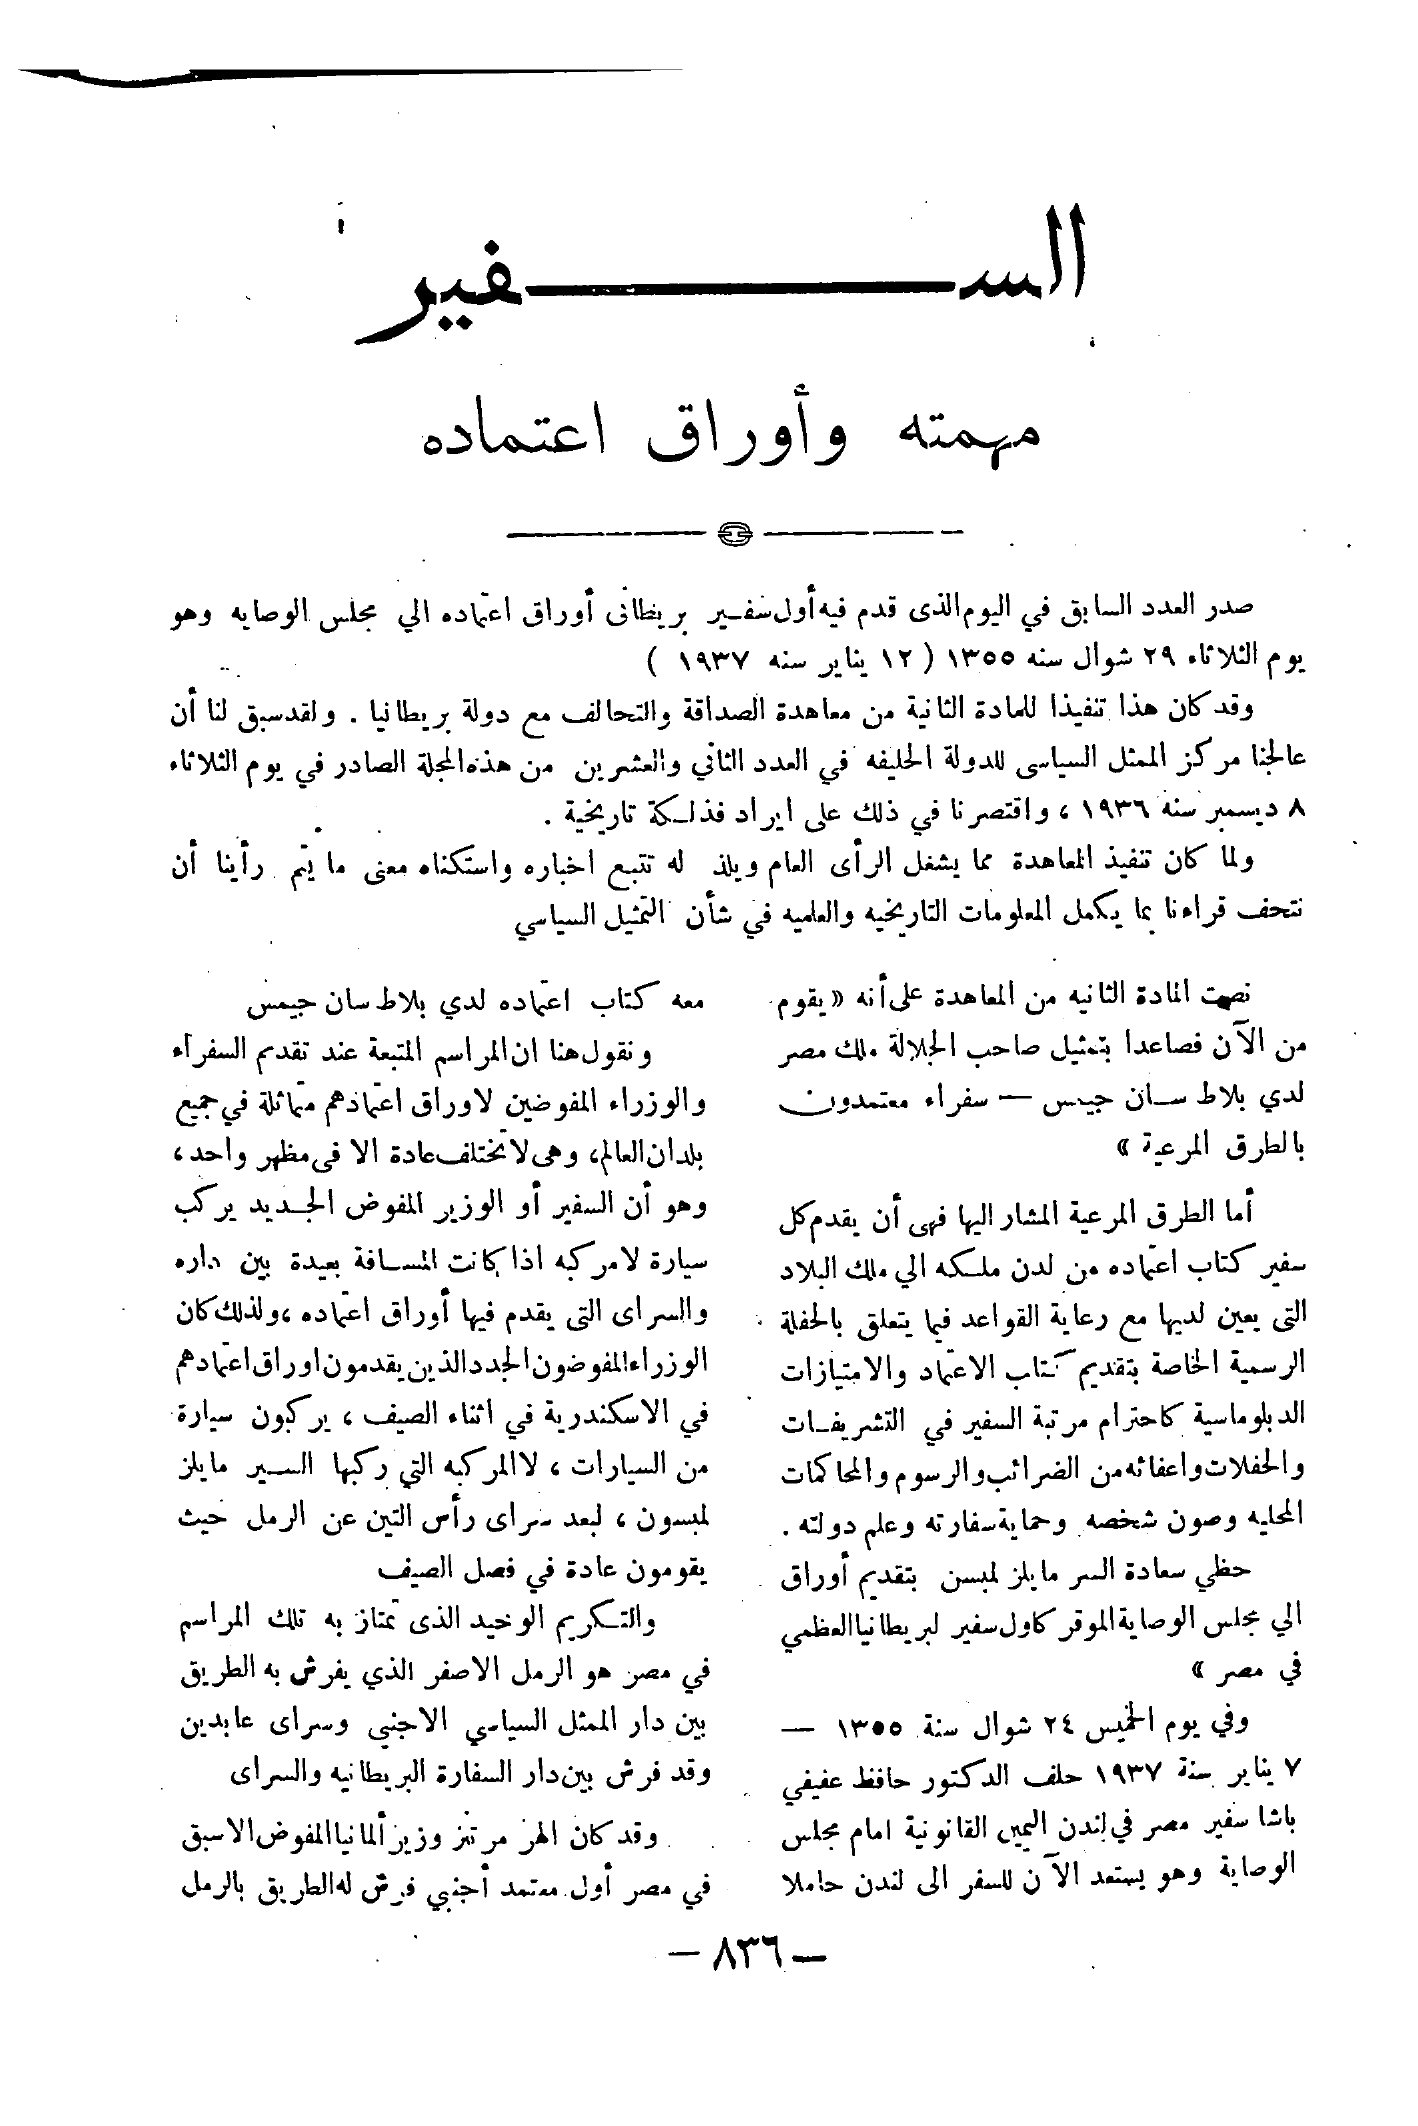 السفير
مهمته وأوراق اعتماده
صدر العدد السابق في اليوم الذى قدم فيه أول سفير بريطانى أوراق اعتماده الي مجلس الوصايه وهو
يوم الثلاثاء ٢٩ شوال سنه ١٣٥٥ ( ١٢ يناير سنه ١٩٣٧ )
وقد كان هذا تنفيذا للمادة الثانية من معاهدة الصداقة والتحالف مع دولة بريطانيا . ولقد سبق لنا أن
عالجنا مركز الممثل السياسى للدولة الحليفه في العدد الثاني والعشرين من هذه المجلة الصادر في يوم الثلاثاء
٨ ديسمبر سنه ١٩٣٦ ، واقتصرنا في ذلك على ايراد فذلكة تاريخية .
ولما كان تنفيذ المعاهدة مما يشغل الرأى العام ويلذ له تتبع اخباره واستكناه معنى ما يتم رأينا أن
نتحف قراءنا بما يكمل المعلومات التاريخيه والعلميه في شأن التمثيل السياسي
نصت المادة الثانيه من المعاهدة على أنه « يقوم
من الآن فصاعدا بتمثيل صاحب الجلالة ملك مصر
لدي بلاط سان جيمس — سفراء معتمدون
بالطرق المرعية »
أما الطرق المرعية المشار اليها فهى أن يقدم كل
سفير كتاب اعتماده من لدن ملكه الي ملك البلاد
التى يعين لديها مع رعاية القواعد فيما يتعلق بالحفلة
الرسمية الخاصة بتقديم كتاب الاعتماد والامتيازات
الدبلوماسية كاحترام مرتبة السفير في التشريفات
والحفلات واعفائه من الضرائب والرسوم والمحاكمات
المحليه وصون شخصه وحماية سفارته وعلم دولته .
حظي سعادة السر مايلز لمبسن بتقديم أوراق
الي مجلس الوصاية الموقر كاول سفير لبريطانيا العظمي
في مصر »
وفي يوم الخميس ٢٤ شوال سنة ١٣٥٥ —
٧ يناير سنة ١٩٣٧ حلف الدكتور حافظ عفيفي
باشا سفير مصر في لندن اليمين القانونية امام مجلس
الوصاية وهو يستعد الآن للسفر الى لندن حاملا
معه كتاب اعتماده لدي بلاط سان جيمس
ونقول هنا ان المراسم المتبعة عند تقديم السفراء
والوزراء المفوضين لاوراق اعتمادهم متماثلة في جميع
بلدان العالم، وهى لا تختلف عادة الا فى مظهر واحد،
وهو أن السفير أو الوزير المفوض الجديد يركب
سيارة لا مركبه اذا كانت المسافة بعيدة بين داره
والسراى التى يقدم فيها أوراق اعتماده ، ولذلك كان
الوزراء المفوضون الجدد الذين يقدمون اوراق اعتمادهم
في الاسكندرية في اثناء الصيف ، يركبون سيارة
من السيارات ، لا المركبه التي ركبها السير مايلز
لمبسون ، لبعد سراى رأس التين عن الرمل حيث
يقومون عادة في فصل الصيف
والتكريم الوحيد الذى تمتاز به تلك المراسم
في مصر هو الرمل الاصفر الذي يفرش به الطريق
بين دار الممثل السياسي الاجنبي وسراى عابدين
وقد فرش بين دار السفارة البريطانيه والسراى
وقد كان الهر مرتنز وزير ألمانيا المفوض الاسبق
في مصر أول معتمد أجنبي فرش له الطريق بالرمل
— ٨٣٦ —